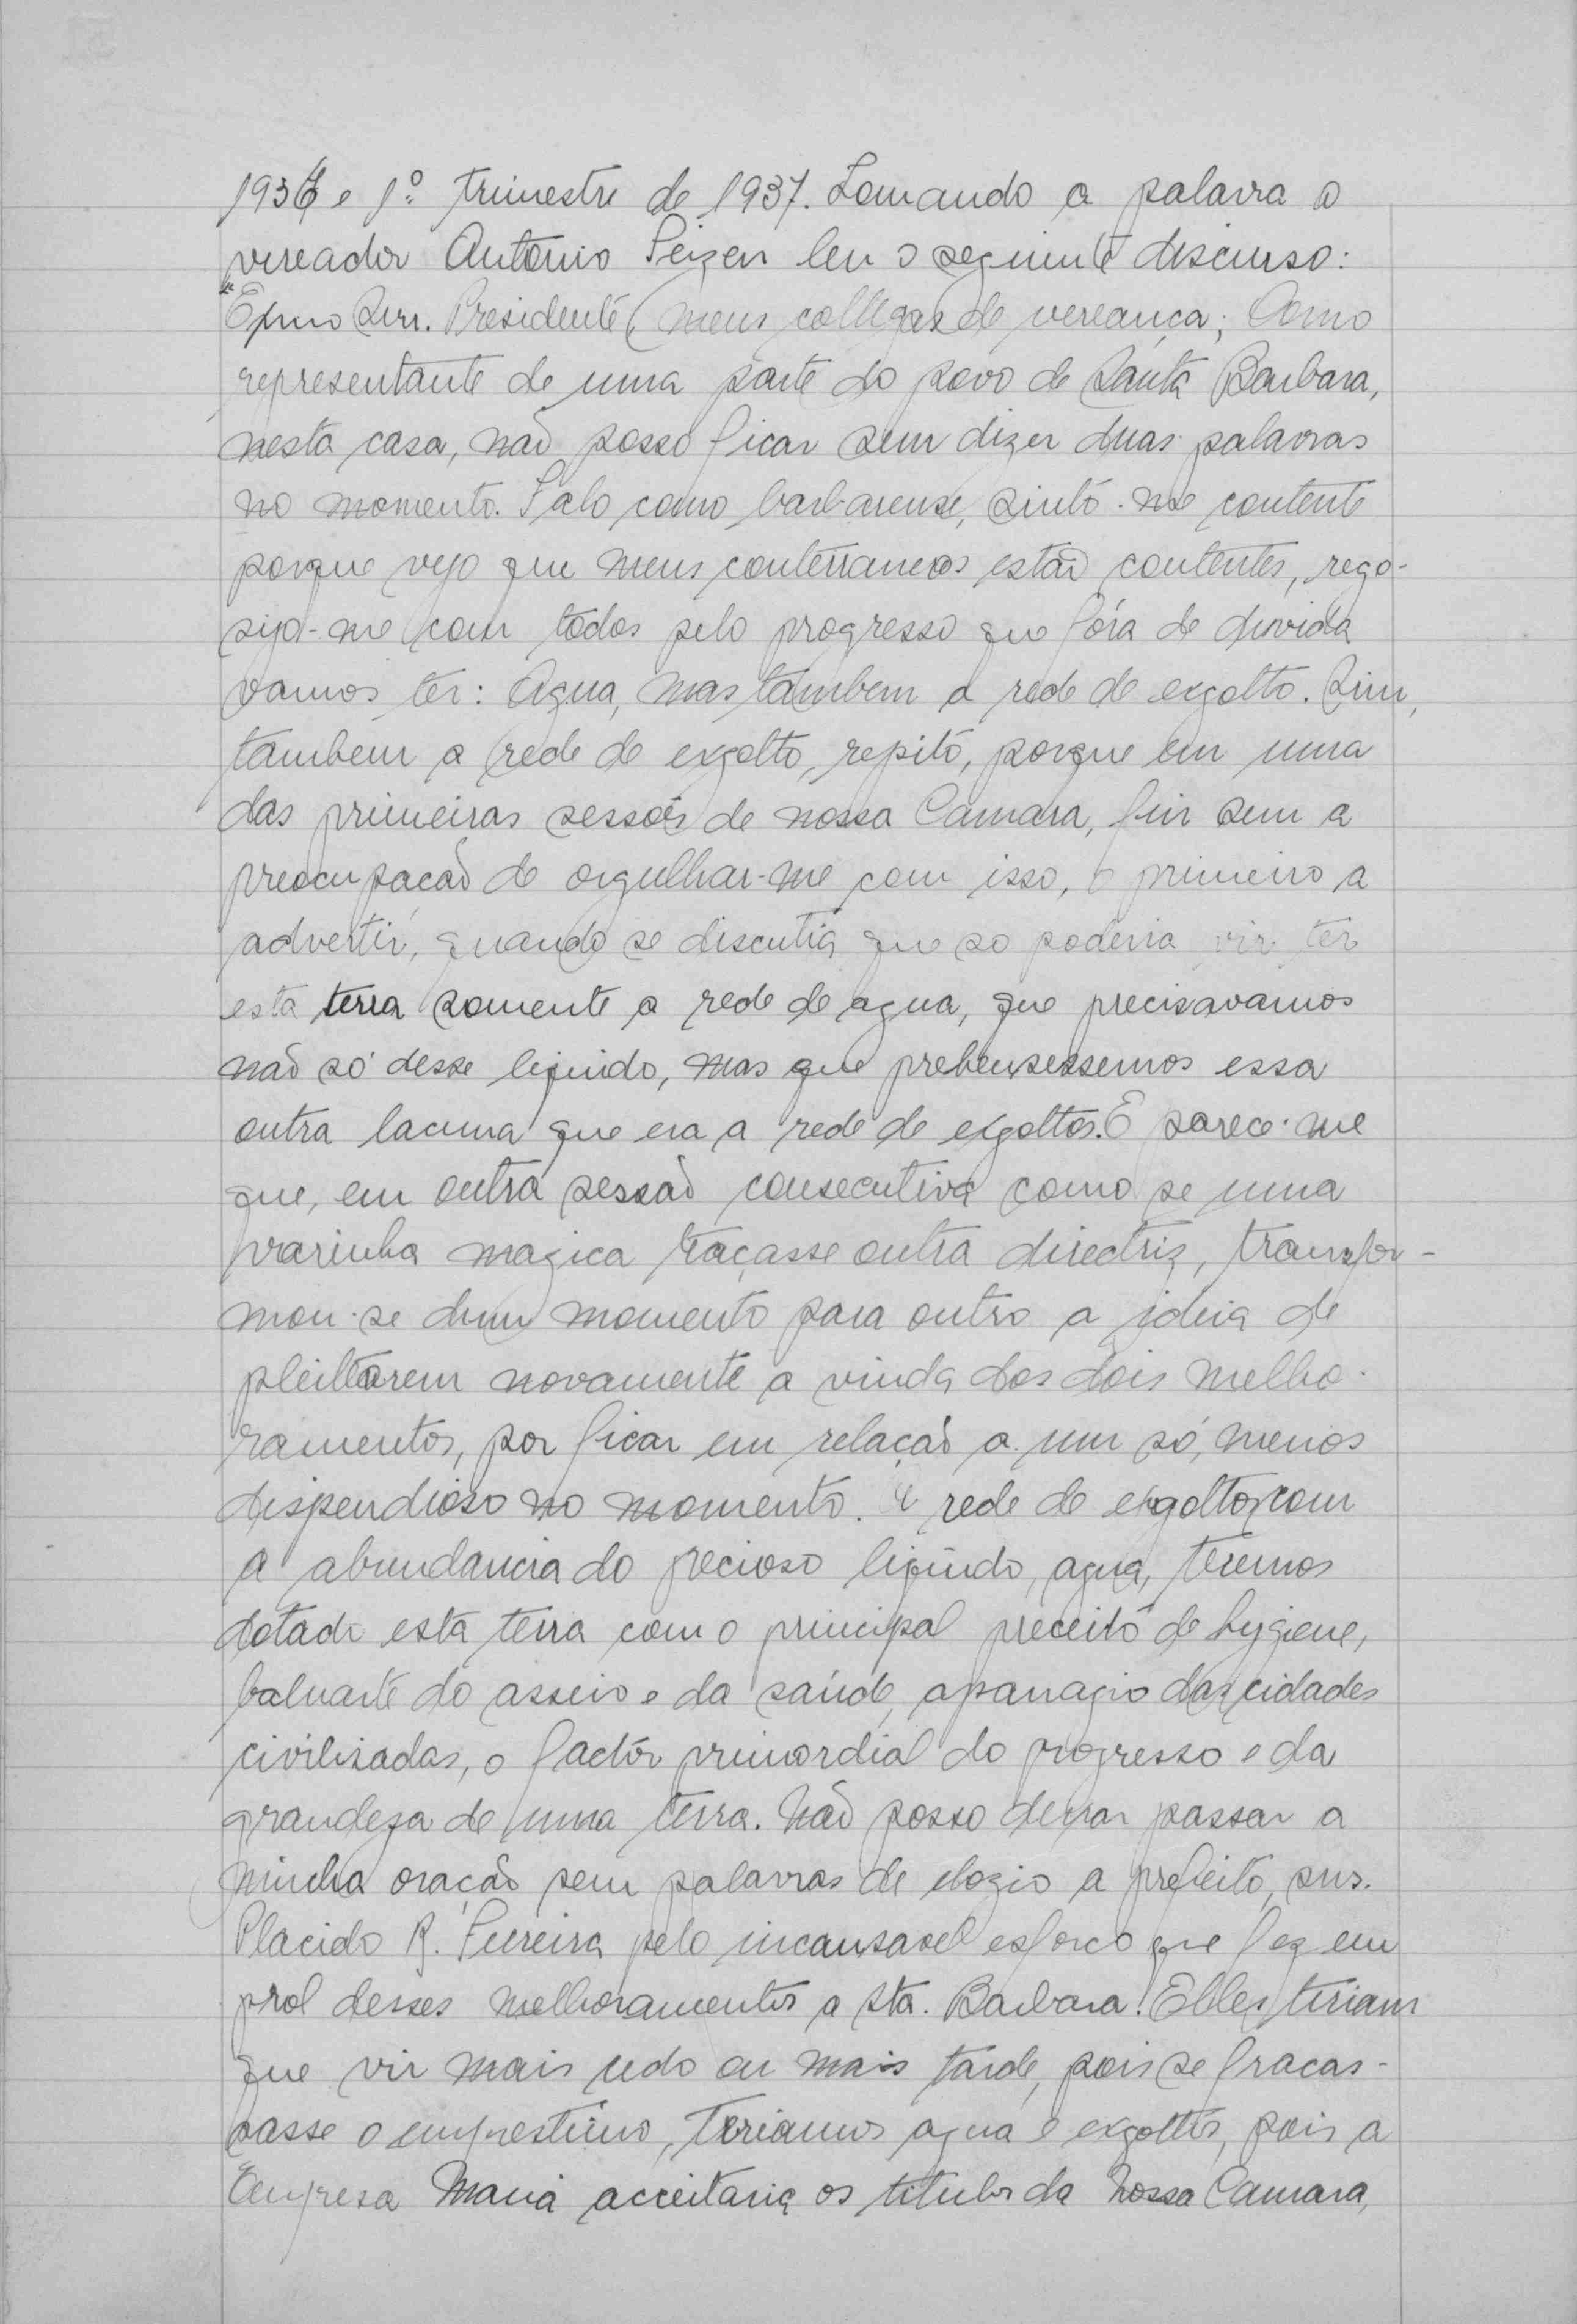 1936 e 1º trimestre de 1937. Tomando a palavra o
vereador Antonio Peizer leu o seguinte discurso:
"Exmo Snr. Presidente, meus collegas de vereança; Como
representante de uma parte do povo de Santa Barbara,
nesta casa, não posso ficar sem dizer duas palavras
no momento. Falo como barbarense, sinto-me contente
porque vejo que meus conterraneos estão contentes, rego-
sijo-me com todos pelo progresso que fóra de duvida
vamos ter: Agua, mas tambem a rede de exgotto. Sim,
tambem a rede de exgotto, repito, porque em uma
das primeiras sessões de nossa Camara, fui sem a
preocupação de orgulhar-me com isso, o primeiro a
advertir, quando se discutia que so poderia vir ter
esta terra somente a rede de agua, que precisavamos
não só desse liquido, mas que prehensessemos essa
outra lacuna que era a rede de exgottos. E parece-me
que, em outra sessão consecutiva como se uma
varinha magica traçasse outra directriz, transfor-
mou-se dum momento para outro a ideia de
pleittarem novamente a vinda dos dois melho-
ramentos, por ficar em relação a um só, menos
dispendioso no momento. E rede de exgottos com
a abundancia do precioso liquido, agua, teremos
dotado esta terra com o principal preceito de hygiene,
baluarte do asseio e da saúde, apanagio das cidades
civilisadas, o factôr primordial do progresso e da
grandeza de uma terra. Não posso deixar passar a
minha oração sem palavras de elogio a prefeito, snr.
Placido R. Ferreira pelo incansavel esforço que fez em
prol desses melhoramentos a Sta. Barbara! Elles teriam
que vir mais cedo ou mais tarde, pois se fracas-
sasse o emprestimo, teriamos agua e exgottos, pois a
Empresa Mauá acceitaria os titulos da nossa Camara,